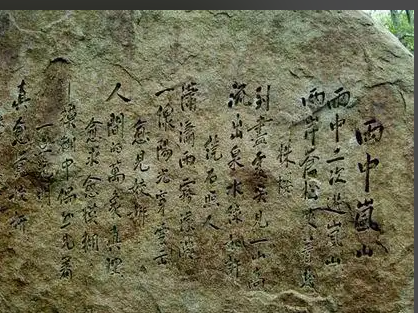 雨中嵐山
雨中二次遊嵐山
兩岸蒼松夾著幾
株櫻
到盡處突見一山高
流出泉水綠如許
繞石照人
瀟瀟雨霧濛濃
一線陽光穿雲出
愈見姣妍
人間的萬象真理
愈求愈模糊
模糊中偶然見著
一點光明
真愈覺姣妍